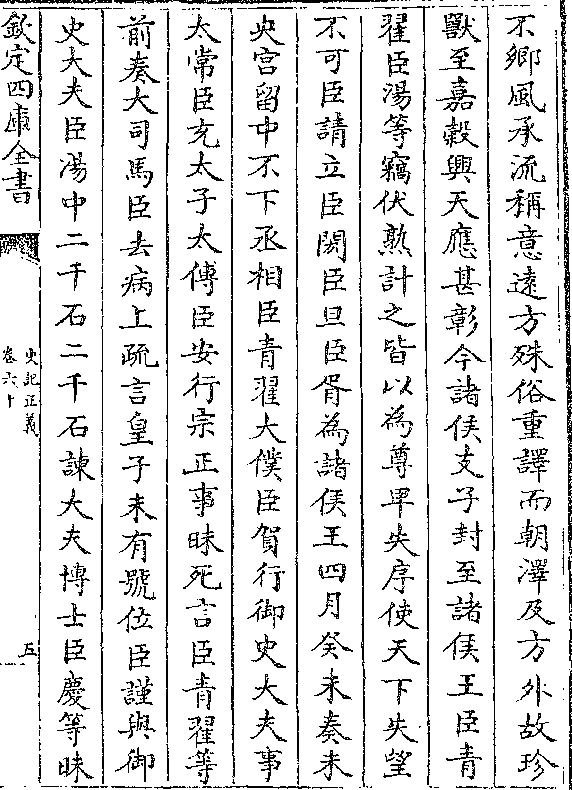 不鄉風承流稱意遠方殊俗重譯而朝澤及方外故珍
獸至嘉穀興天應甚彰今諸侯支子封至諸侯王臣青
翟臣湯等竊伏熟計之皆以為尊卑失序使天下失望
不可臣請立臣閎臣旦臣胥為諸侯王四月癸未奏未
央宮留中不下丞相臣青翟大僕臣賀行御史大夫事
太常臣充太子太傅臣安行宗正事昧死言臣青翟等
前奏大司馬臣去病上疏言皇子未有號位臣謹與御
史大夫臣湯中二千石二千石諫大夫博士臣慶等昧
欽定四庫全書
史記正義
卷六十
五